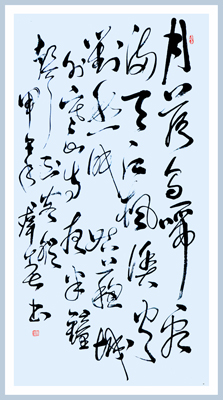 月落烏啼霜
滿天江楓漁火
對愁眠姑蘇城
外寒山寺夜半鐘
聲到客船
甲午年書